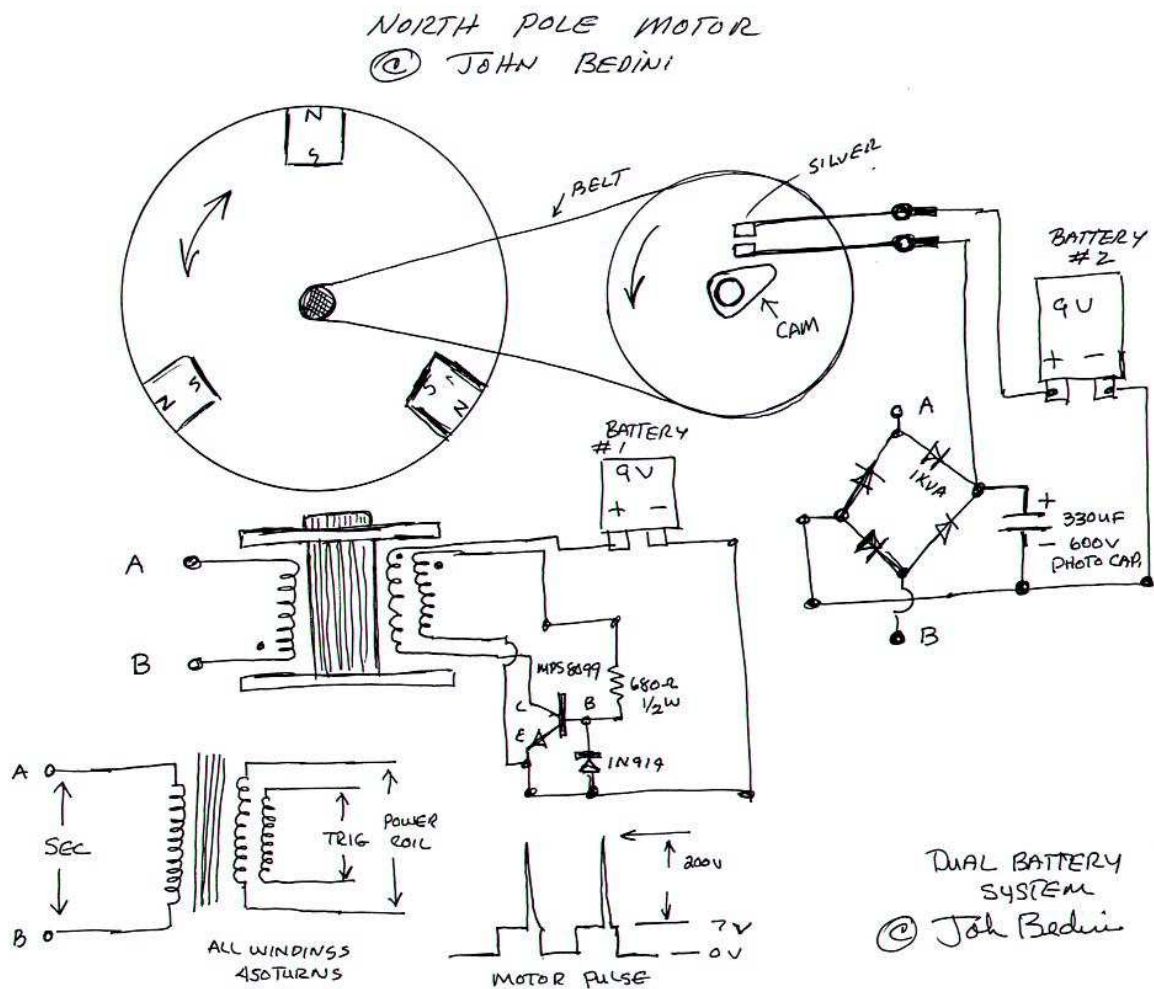 NORTH POLE MOTOR
© JOHN BEDINI
N
S
BELT
SILVER
CAM
BATTERY
#2
9V
+ -
S
N
S
N
A
1KVA
B
+
330UF
- 600V
PHOTO CAP.
BATTERY
#1
9V
+ -
A
B
MPS8099
C
B
E
680Ω
1/2W
1N914
A
SEC
B
TRIG
POWER
COIL
ALL WINDINGS
450TURNS
200V
7V
0V
MOTOR PULSE
DUAL BATTERY
SYSTEM
© John Bedini